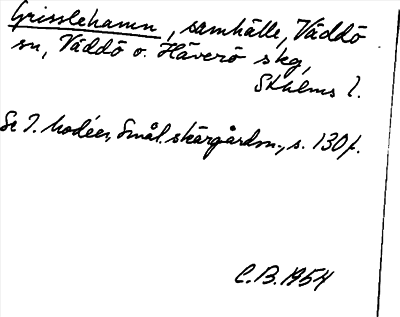 Grisslehamn, samhälle, Väddö
sn, Väddö o. Häverö skg,
Sthlms l.
Se I. Modéer, Smål. skärgårdsn., s. 130 f.
C.B. 1954